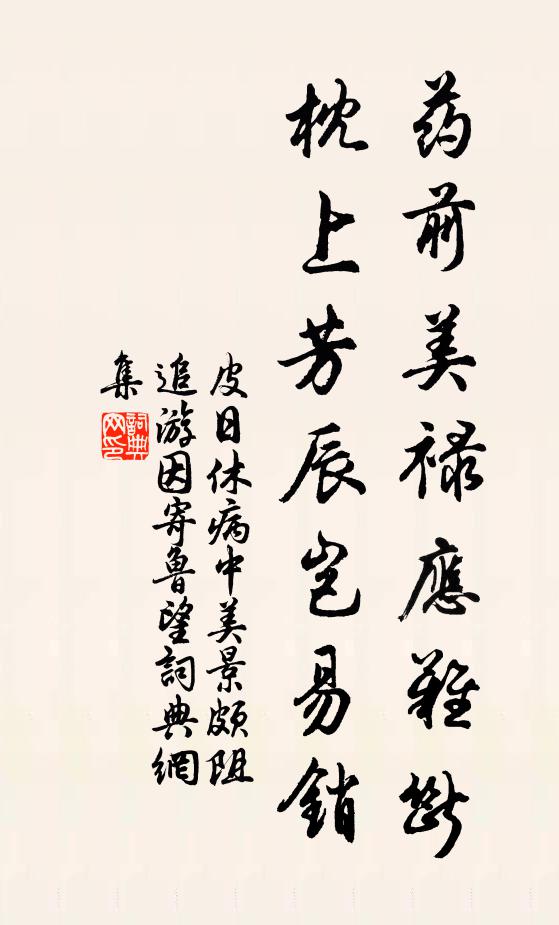 药前美禄應難斷
枕上芳辰豈易銷
皮日休病中美景頗阻
追游因寄魯望詞典網
集
詞典網印